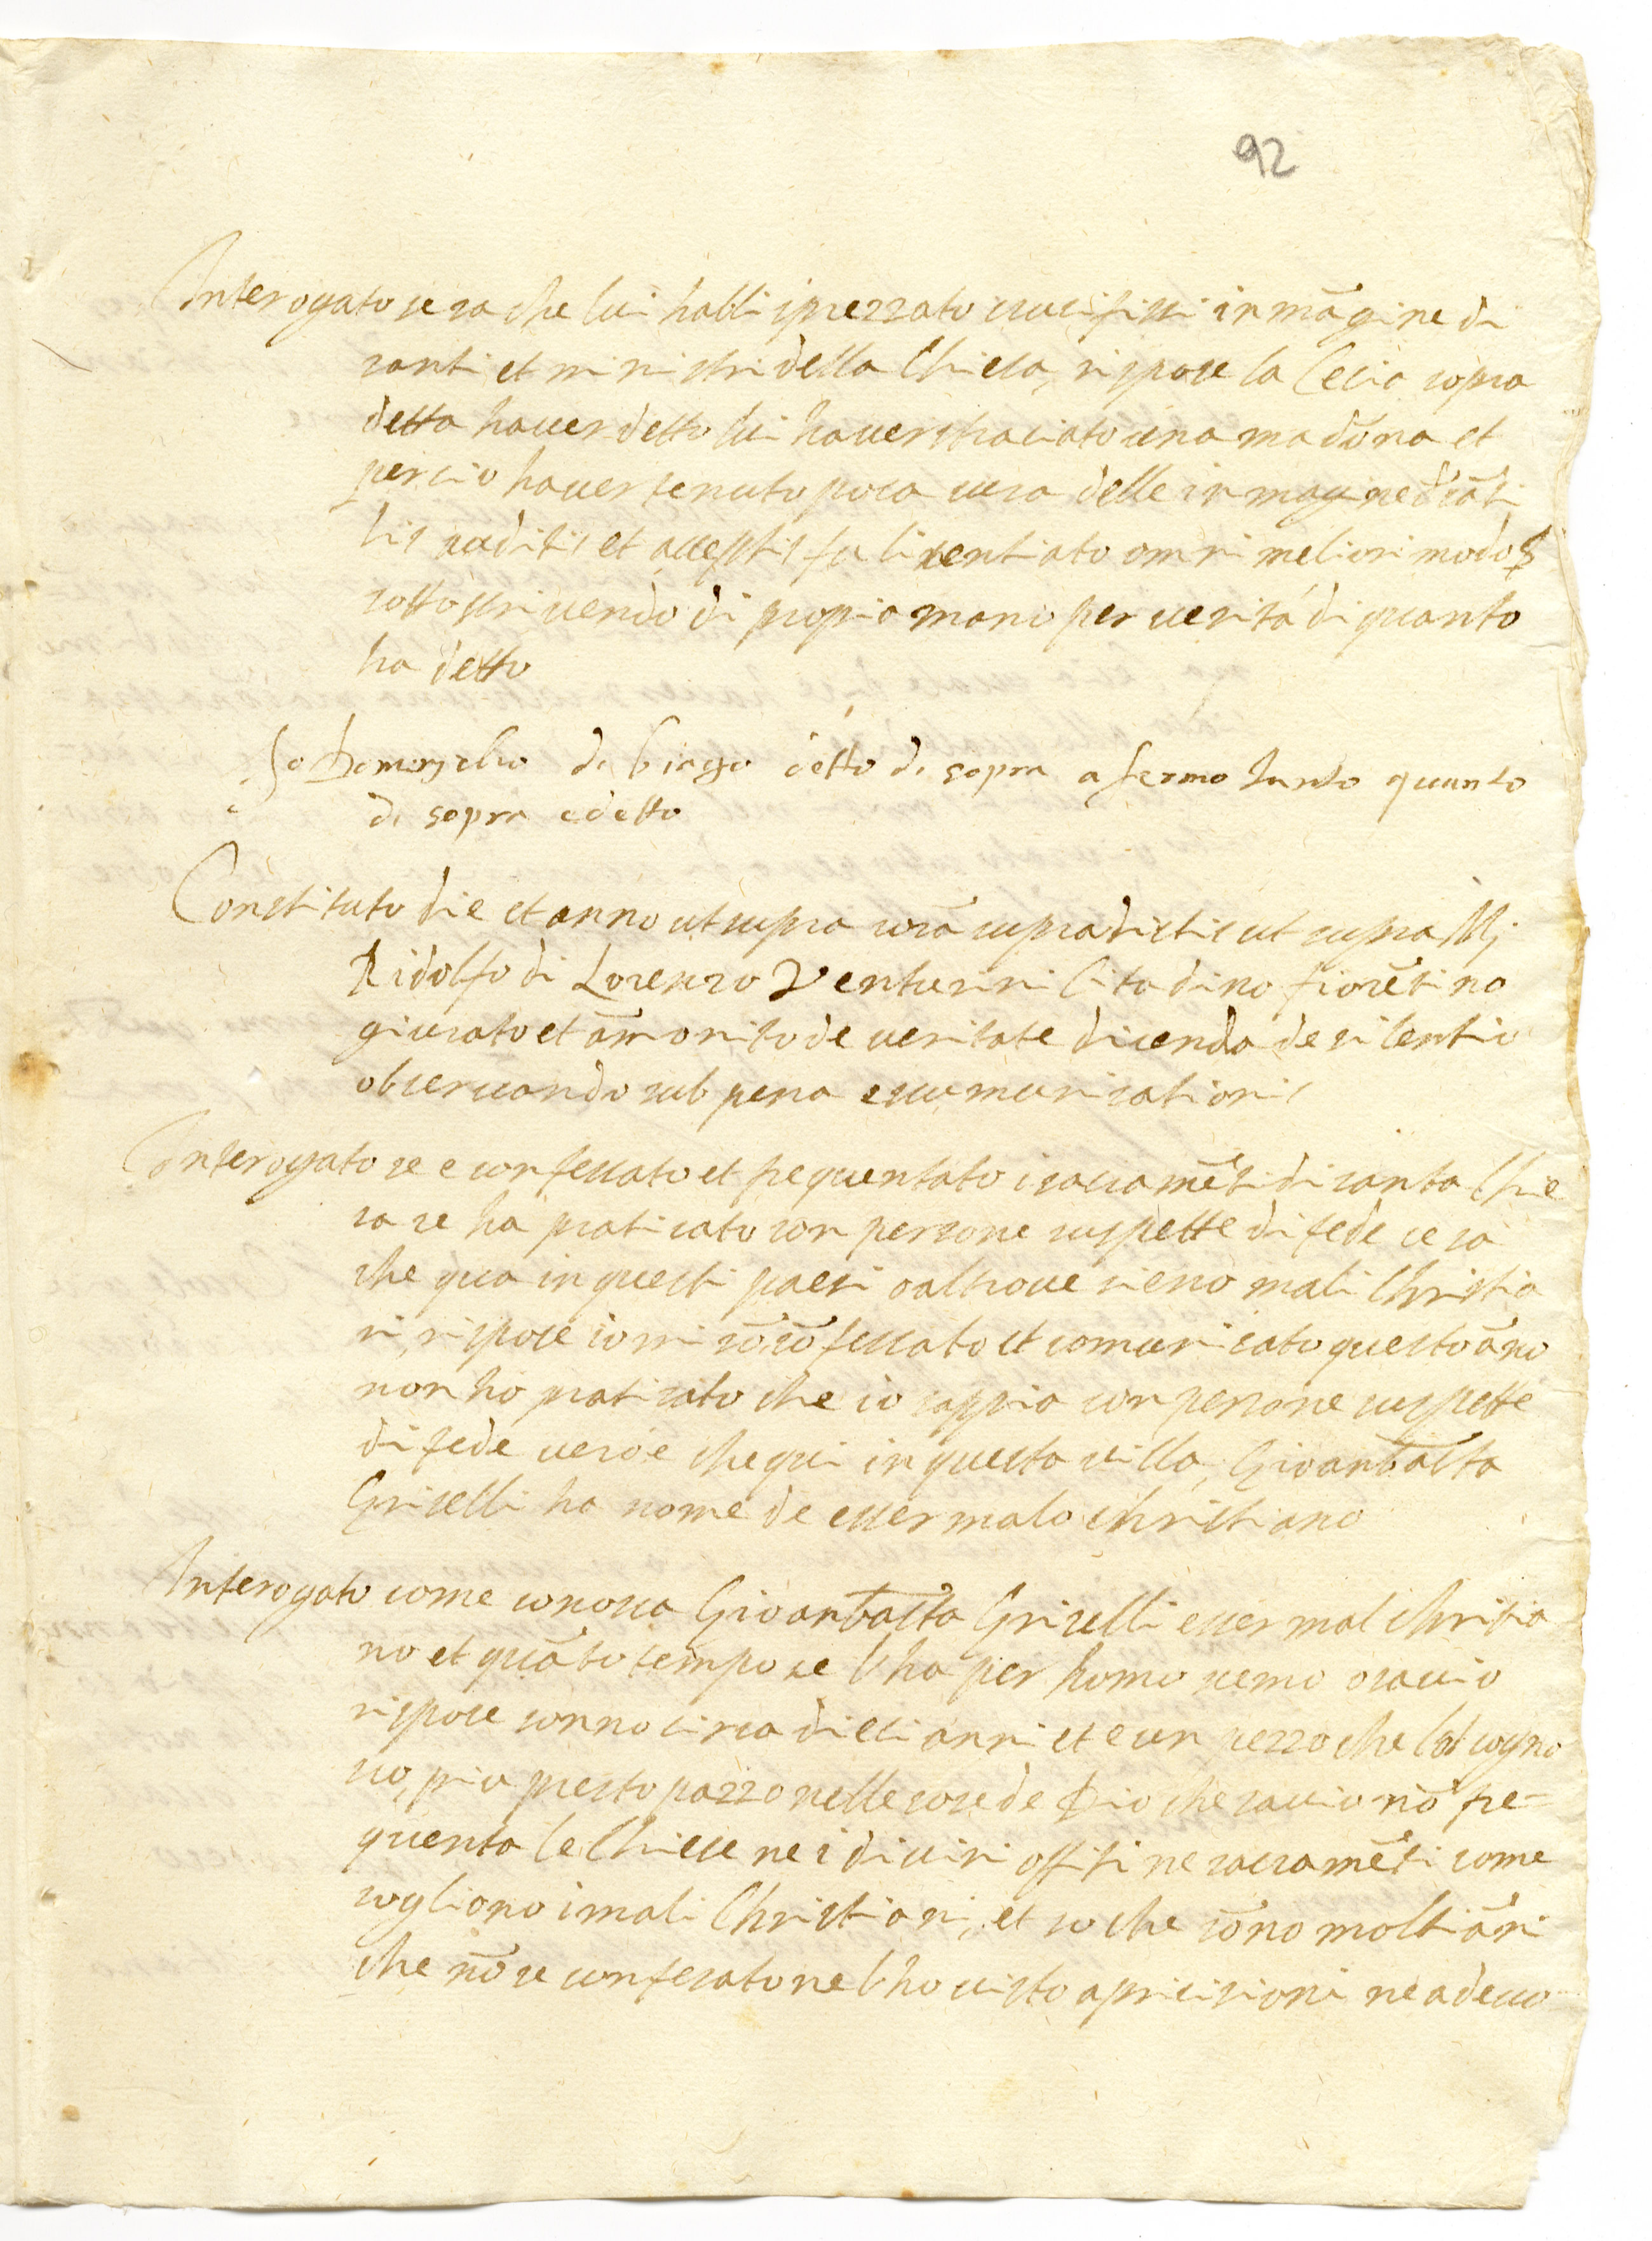 92
Interogato se sa che lui habbi sprezzato crucifissi inmãgine di
santi et ministri della Chiesa, rispose la Cecia sopra
detta haver detto lui haver straciato una madõna et
percio haver tenuto poca cura delle inmagine d sãti
his auditis et acceptis fu licentiato omni meliori modo
sottoscrivendo di propria mano per verità di quanto
ha detto
Io Domenicho di biagio detto di sopra afermo tanto quanto
di sopra edetto
Constituto die et anno ut supra corã supradictis ut supra Mj
Ridolfo di Lorenzo Venturini Citadino fiorẽtino
giurato et ãmonito de veritate dicenda de silentio
observando sub pena escumunicationis
Interogato se e confessato et frequentato i sacramẽti di santa Chie
sa se ha praticato con persone suspette di fede se sa
che qua in questi paesi o altrove sieno mali Christia
ni, rispose io mi sõ cõfessato et comunicato questo ãno
non ho praticato che io sappia con persone suspette
di fede vero e che qui in questa villa, Giovanbatta
Griselli ha nome de esser malo christiano
Interogato come conosca Giovanbatta Griselli esser mal christia
no et quãto tempo se l'ha per homo scemo o savio
rispose sonno circa dieci anni et e un pezzo che lo cogno
sco, piu presto pazzo nelle cose de Dio che savio nõ fre=
quenta le Chiese ne i divini offiti ne sacramẽti come
sogliono i mali Christiani, et so che sõno molti ãni
che nõ se confesato ne l'ho visto a pricisioni ne adesso